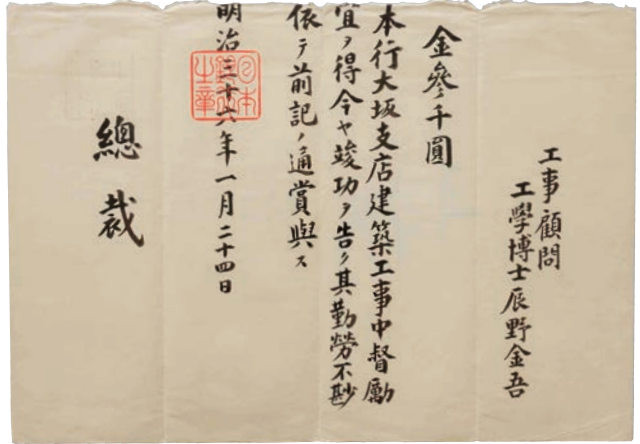 工事顧問
工學博士辰野金吾
金參千圓
本行大坂支店建築工事中督勵
宜ヲ得今ヤ竣功ヲ告ク其勤勞不尠
依テ前記ノ通賞與ス
明治三十六年一月二十四日
日本
銀行
之章
總裁